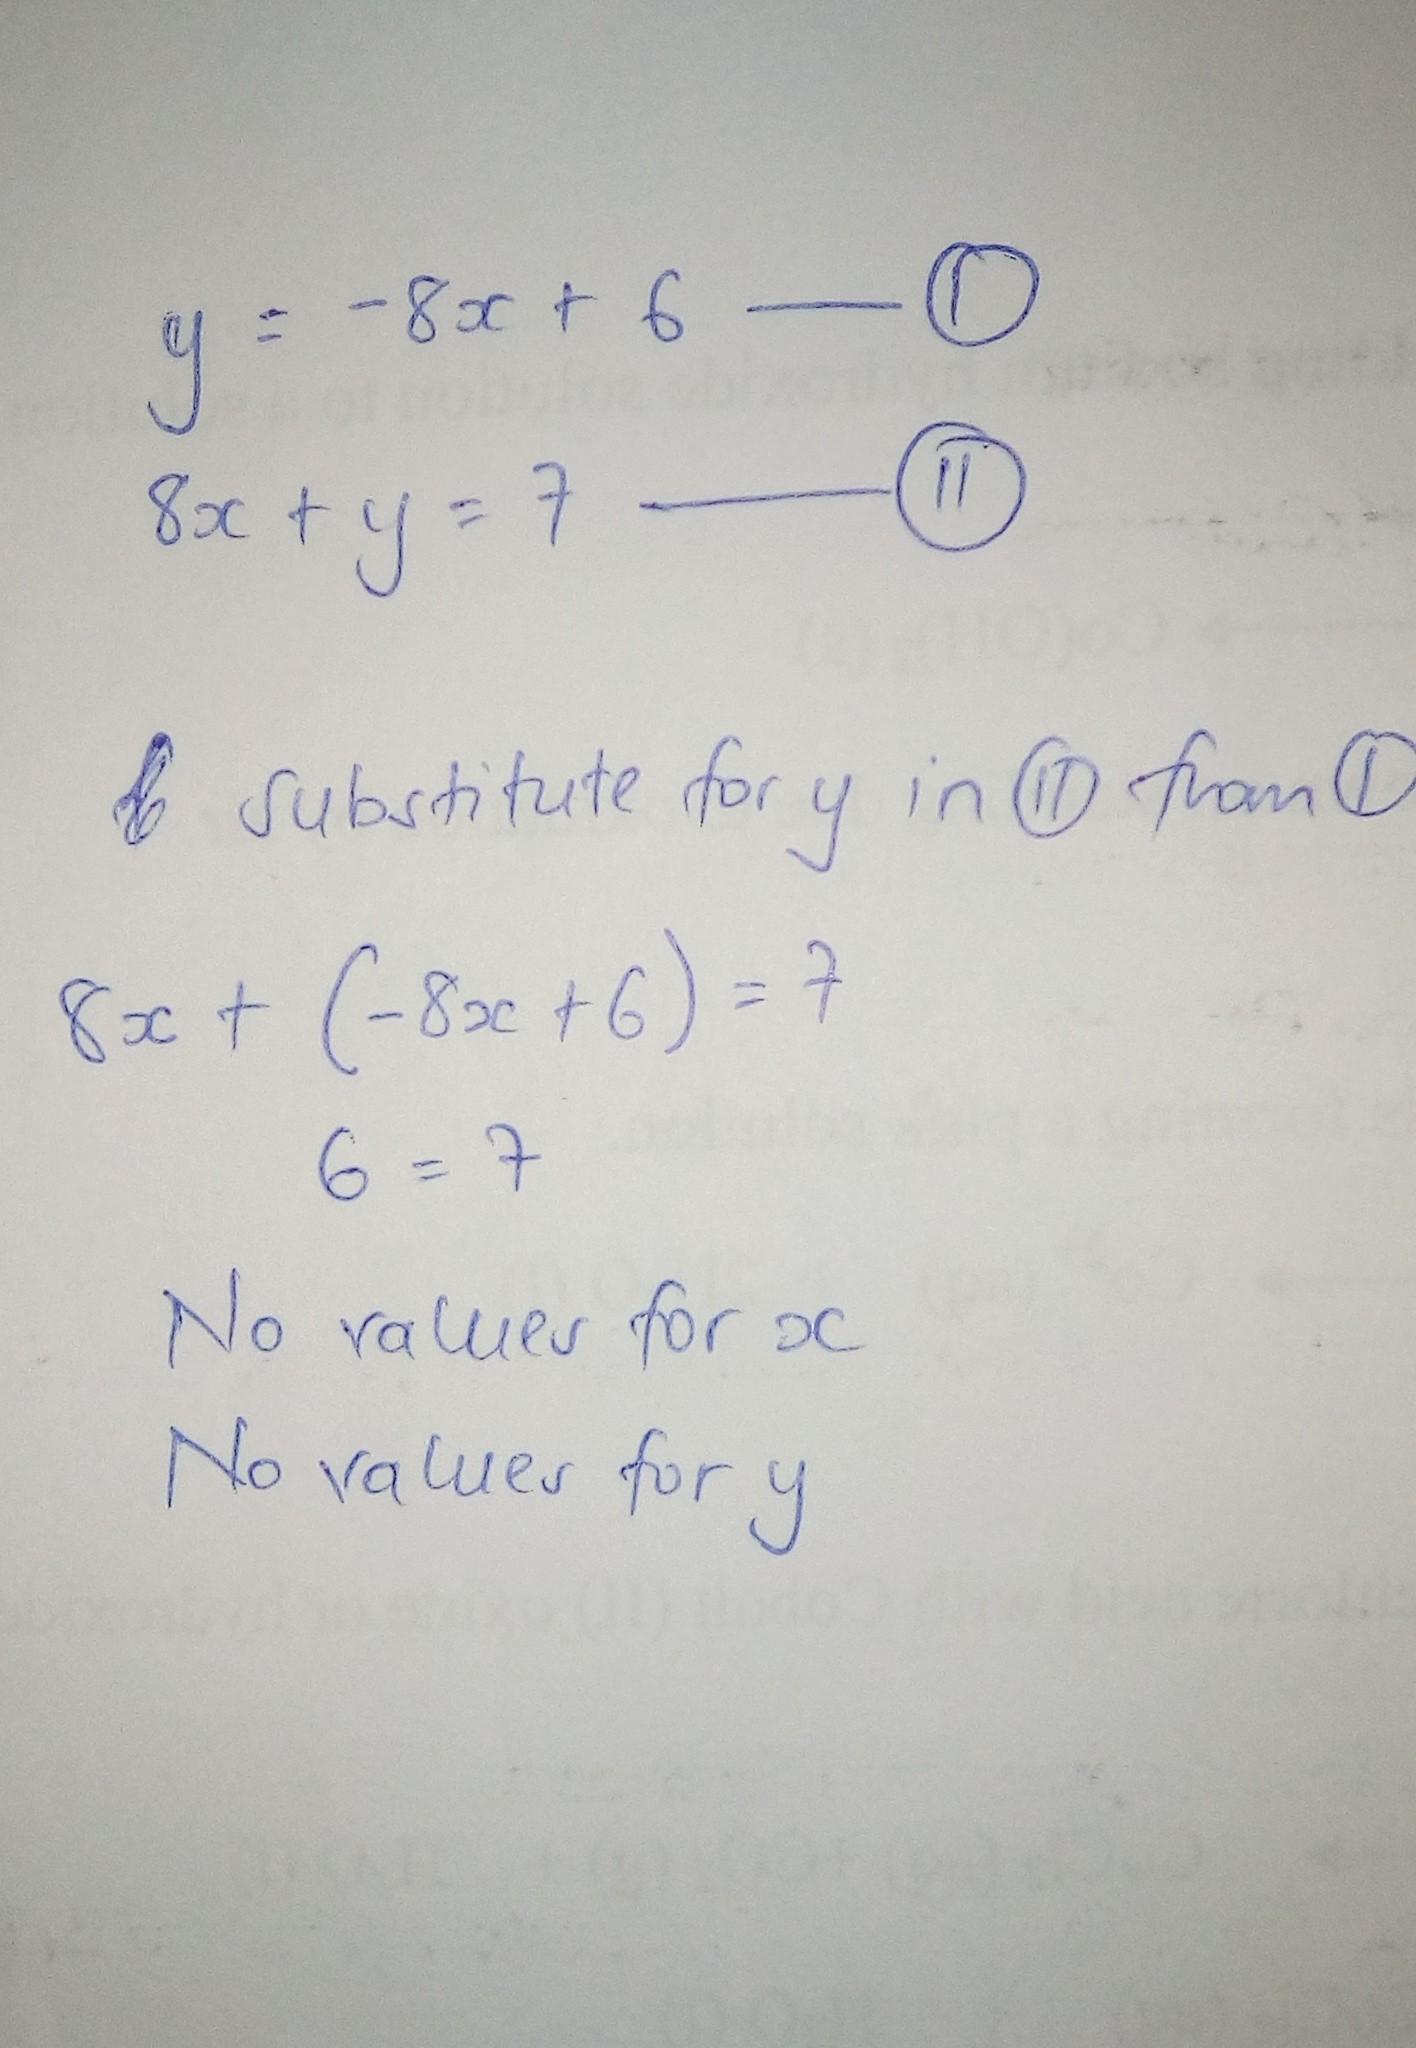 y = -8x + 6 — I
8x + y = 7 — II
substitute for y in II from I
8x + (-8x + 6) = 7
6 = 7
No values for x
No values for y